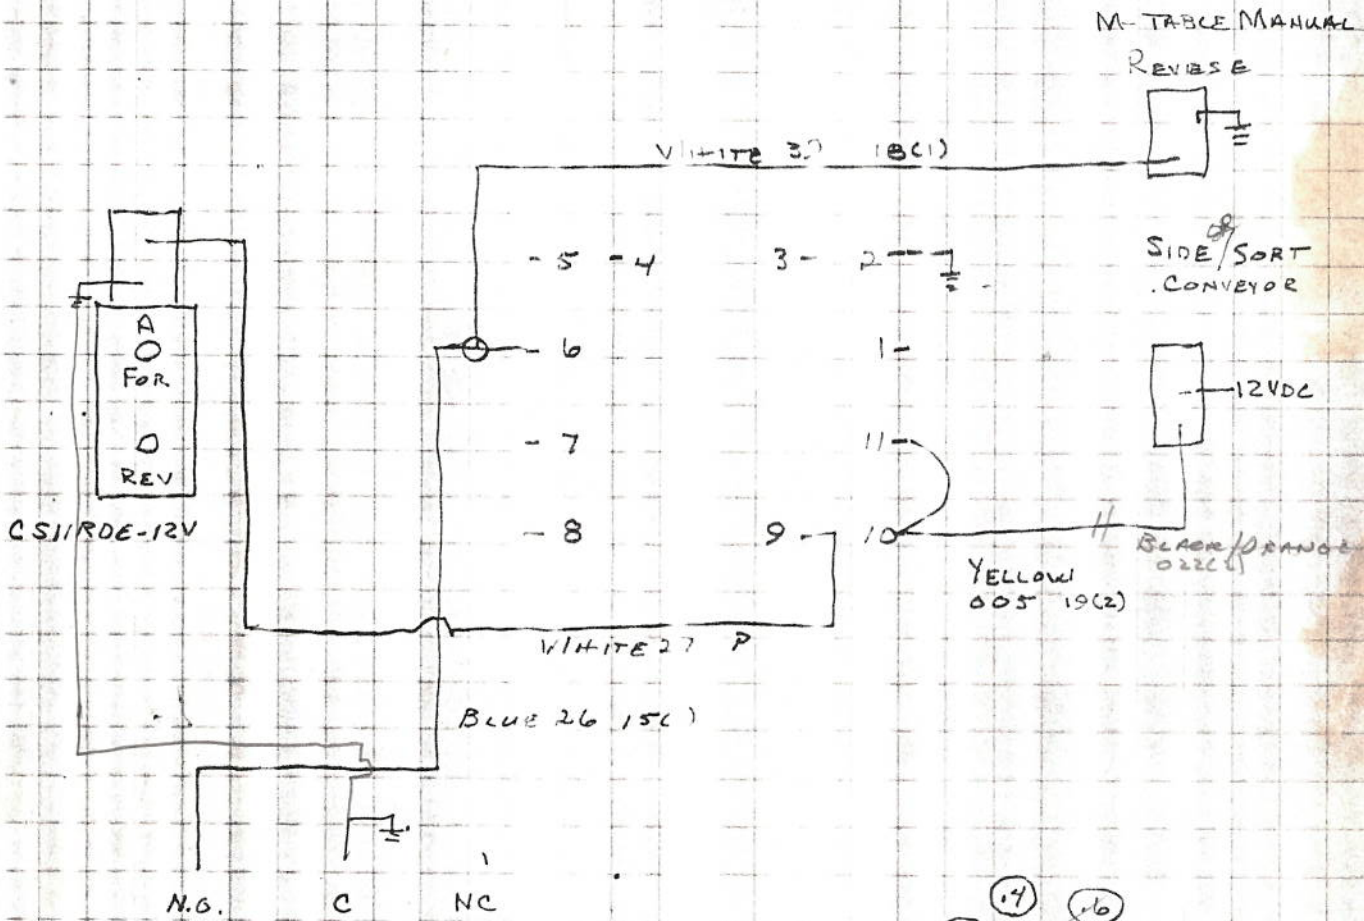 M-TABLE MANUAL
REVESE
WHITE 18(1)
- 5 - 4 3 - 2
SIDE OR / SORT
CONVEYOR
A
FOR
REV
- 6 1 -
12VDC
- 7 11 -
CS11RDE-12V
- 8 9 - 10
BLACK/ORANGE
YELLOW
005 19(2)
WHITE 27 P
BLUE 26 15( )
N.O. C NC
.4 .6